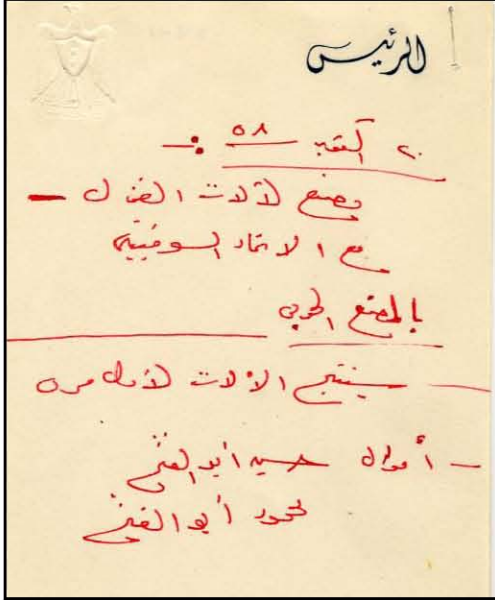 الرئيس
٢٠ أكتوبر ٥٨ :ـ
مصنع لآلات الغزل ـ
مع الاتحاد السوفييتى
بالمصنع الحربى
ـ سينتج الآلات لأول مرة
ـ أموال حسين أبو الفتح
محمود أبو الفتح